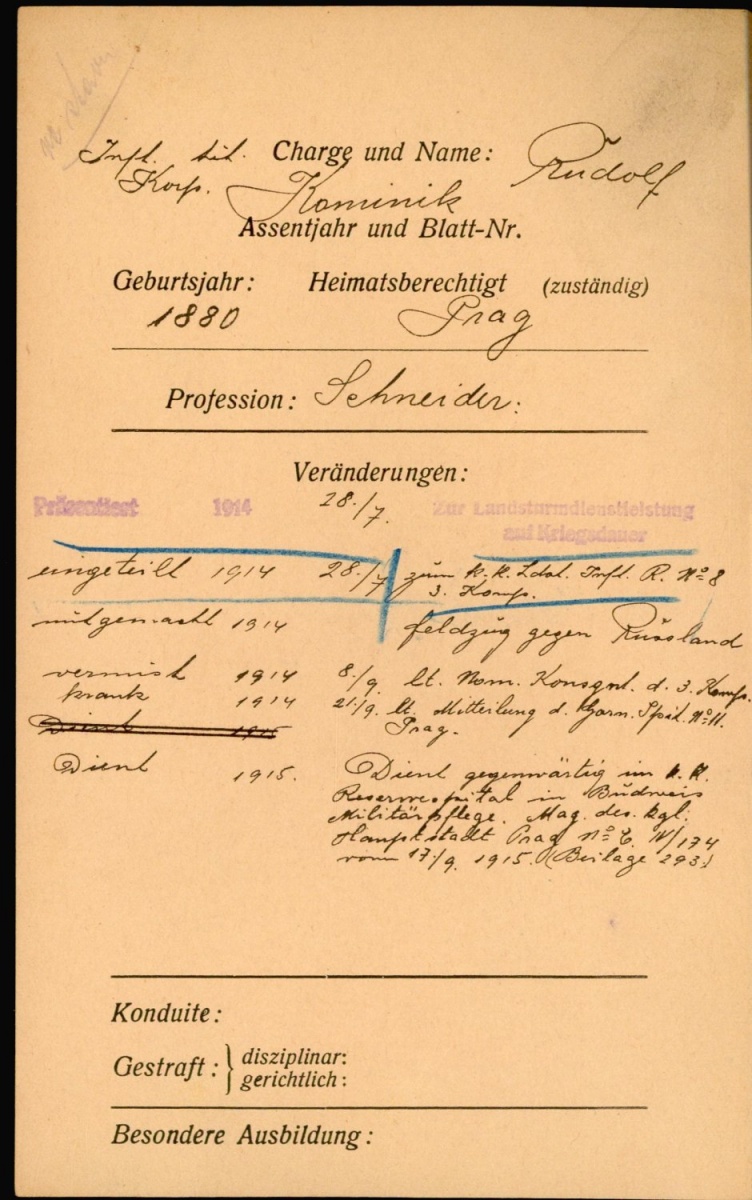 Inft. tit. Charge und Name: Rudolf
Korp. Kominik
Assentjahr und Blatt-Nr.
Geburtsjahr: Heimatsberechtigt (zuständig)
1880 Prag
Profession: Schneider.
Veränderungen:
Präsentiert 1914 28./7. Zur Landsturmdienstleistung
auf Kriegsdauer
eingeteilt 1914 28./7 zum k.k. Ldst. Inft. R. No 8
3. Komp.
mitgemacht 1914 feldzug gegen Russland
vermisst 1914 8./9. lt. Nom. Konsgnt. d. 3. Komp.
krank 1914 21./9. lt. Mitteilung d. Garn. Spit. No 11.
Dient 1915 Prag.
Dient 1915. Dient gegenwärtig im k.k.
Reservespital in Budweis
Militärpflege. Mag. des. kgl:
Hauptstadt Prag No IV/174
vom 17./9. 1915. (Beilage 293.)
Konduite:
Gestraft: } disziplinar:
gerichtlich:
Besondere Ausbildung: